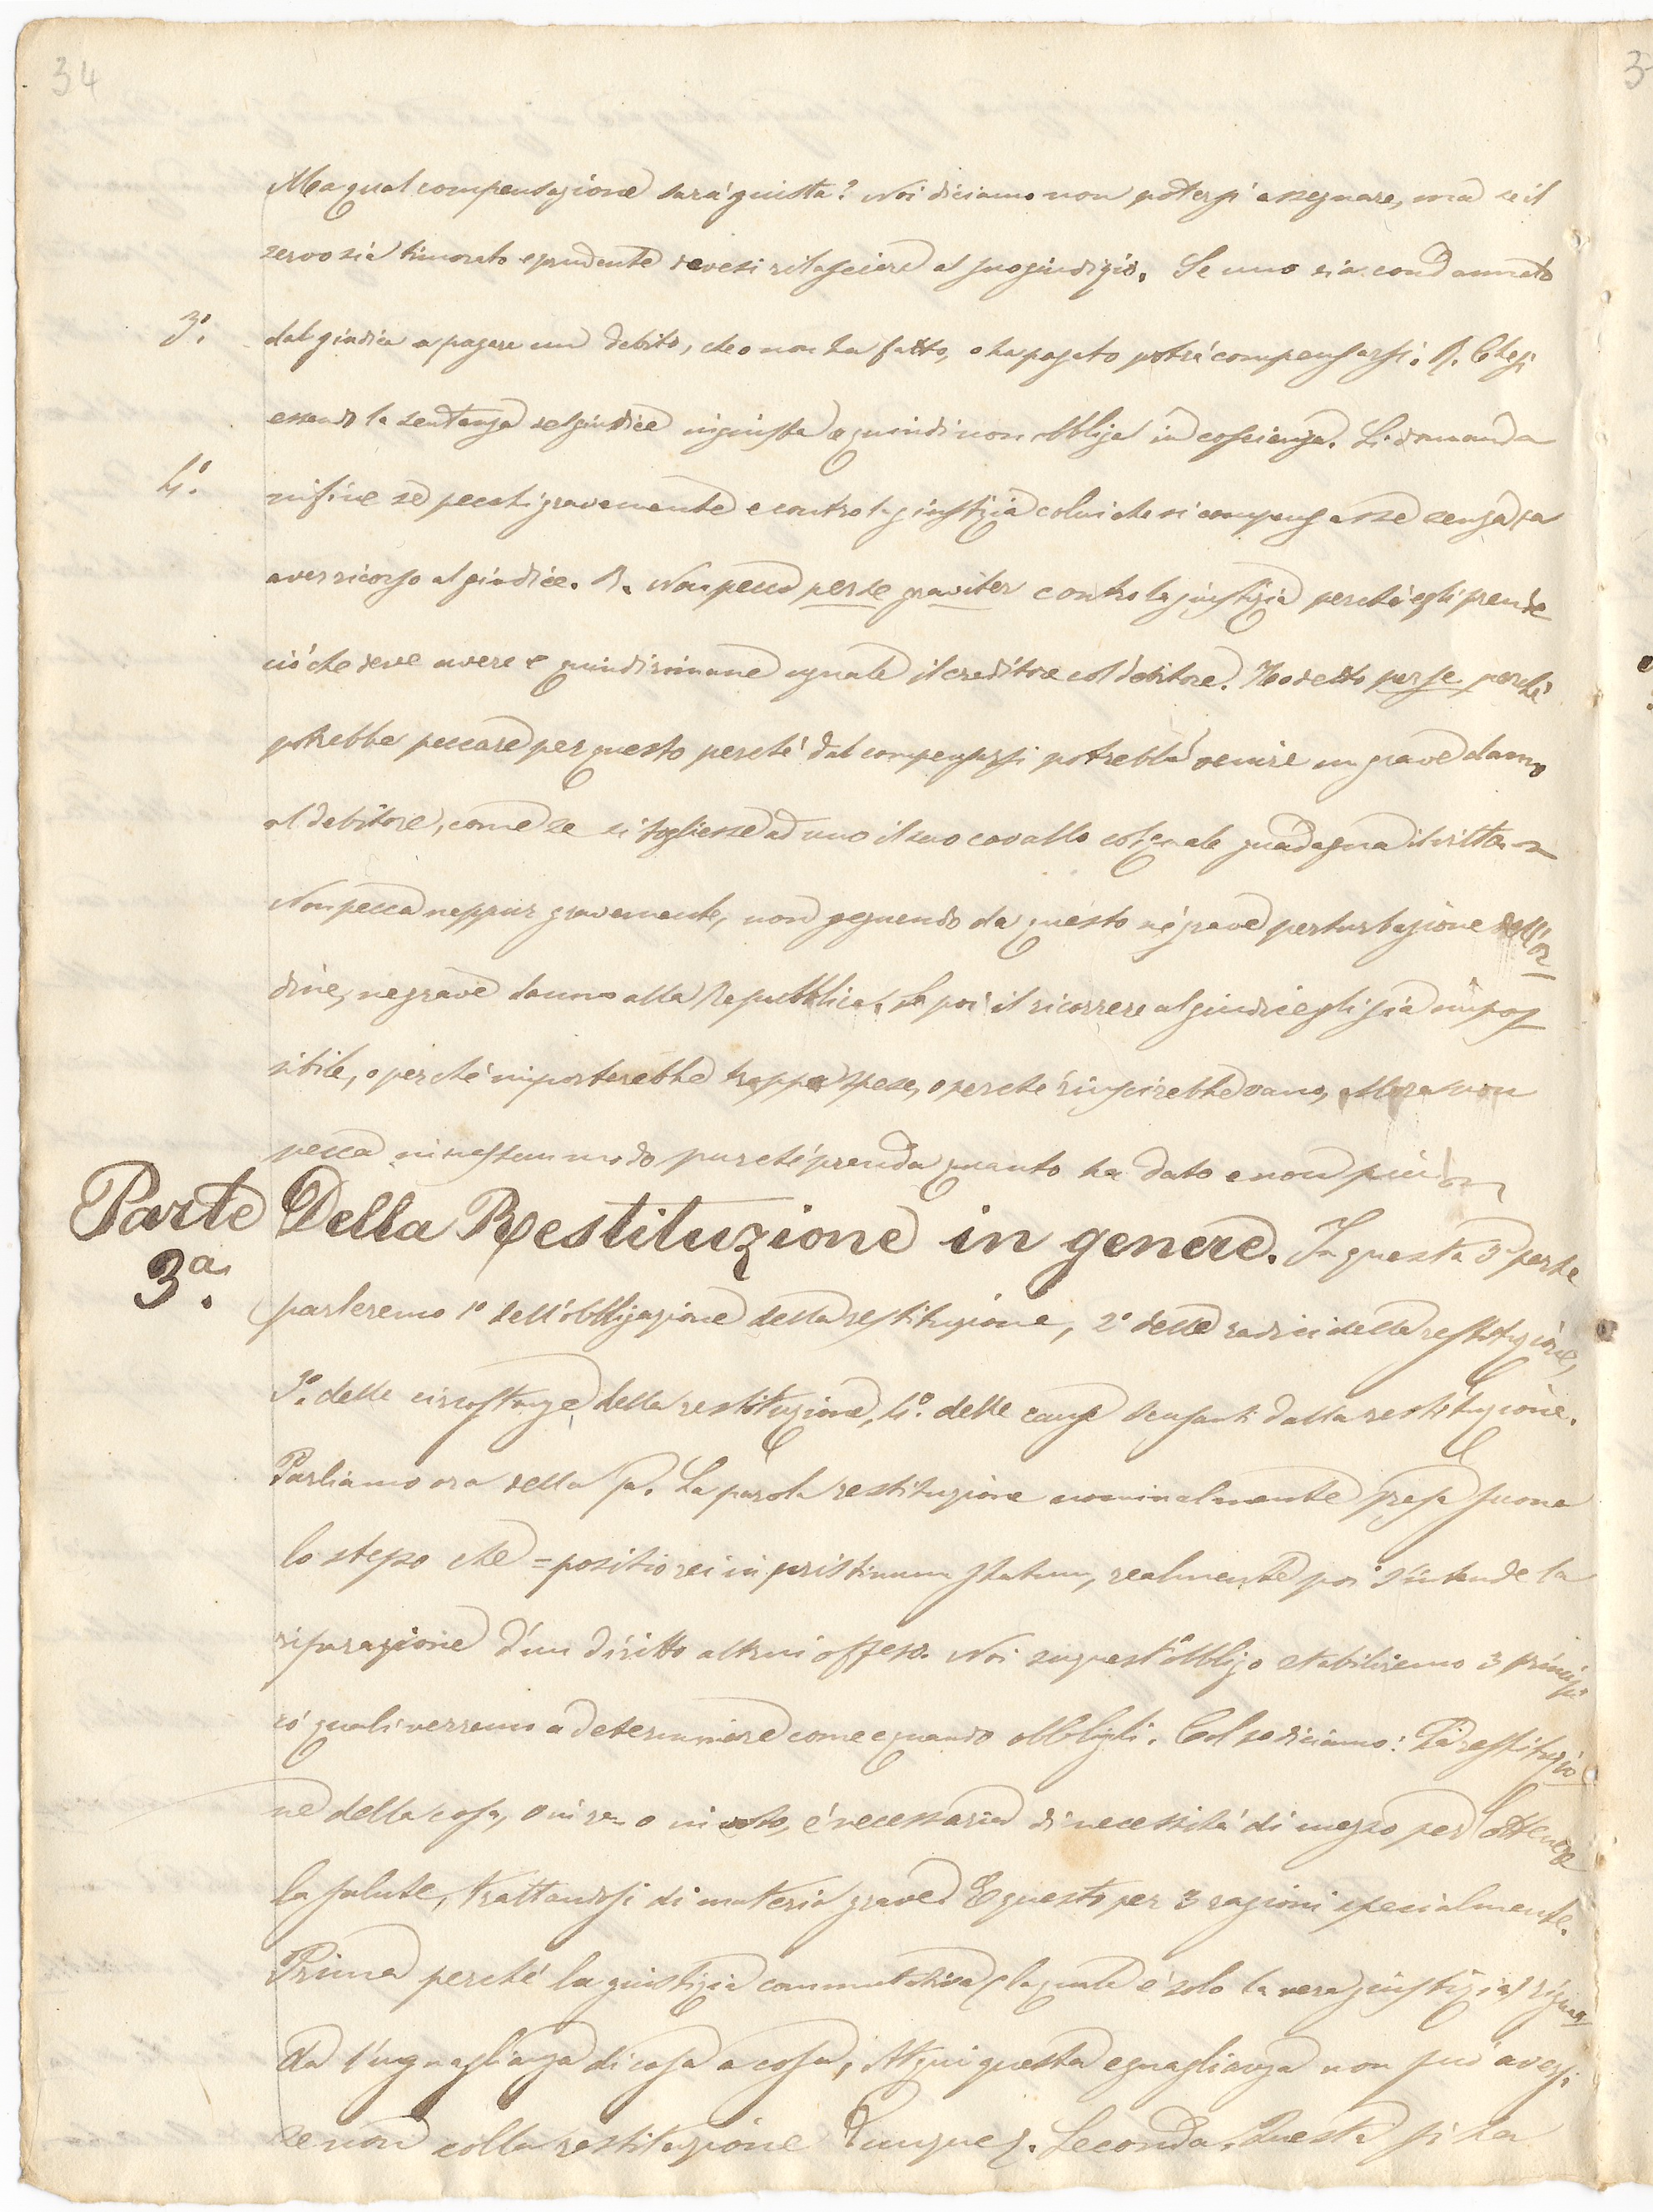 34
Ma qual compensazione sarà giusta? Noi diciamo non potersi assegnare, ma se il
servo sia timorato e prudente devesi rilasciare al suo giudizio. Se uno sia condannato
3º. dal giudice a pagare un debito, che o non ha fatto, o ha pagato potrà compensarsi. R. Che si
essendo la sentenza del giudice ingiusta e quindi non obbliga in coscienza. Si domanda
4º. infine se pecchi gravemente e contro la giustizia colui che si compensasse senza
aver ricorso al giudice. R. Non pecca per se graviter contro la giustizia perché egli prende
ciò che deve avere e quindi rimane eguale il creditore col debitore. Ho detto per se perché
potrebbe peccare per questo perché dal compensarsi potrebbe venire un grave danno
al debitore, come se si togliesse ad uno il suo cavallo col quale guadagna il vitto.
Non pecca neppur gravemente, non seguendo da questo né grave perturbazione dell'or
dine, ne grave danno alla Repubblica. Se poi il ricorrere al giudice gli sia impos
sibile, o perché importerebbe troppe spese, o perché riuscirebbe vano, allora non
pecca in nessun modo purché prenda quanto ha dato e non più
Parte 3ª. Della Restituzione in genere. In questa 3ª parte
parleremo 1º dell'obbligazione della restituzione, 2º delle radici della restituzione,
3º. delle circostanze della restituzione, 4º. delle cause scusanti dalla restituzione.
Parliamo ora della pª. La parola restituzione nominalmente presa suona
lo stesso che = positio rei in pristinum statum, realmente poi s'intende la
riparazione d'un diritto altrui offeso. Noi su quest'obbligo stabiliremo 3 principi
co' quali verremo a determinare come e quando obblighi. Col pº diciamo: La restituzio
ne della cosa, o in re o in voto, è necessaria di necessità di mezzo per ottenere
la salute, trattandosi di materia grave. E questo per 3 ragioni specialmente.
Prima perché la giustizia commutativa (la quale è solo la vera giustizia) riguar
da l'uguaglianza di cosa a cosa; Atqui questa eguaglianza non può aversi
se non colla restituzione Dunque. Seconda. Questa si ha